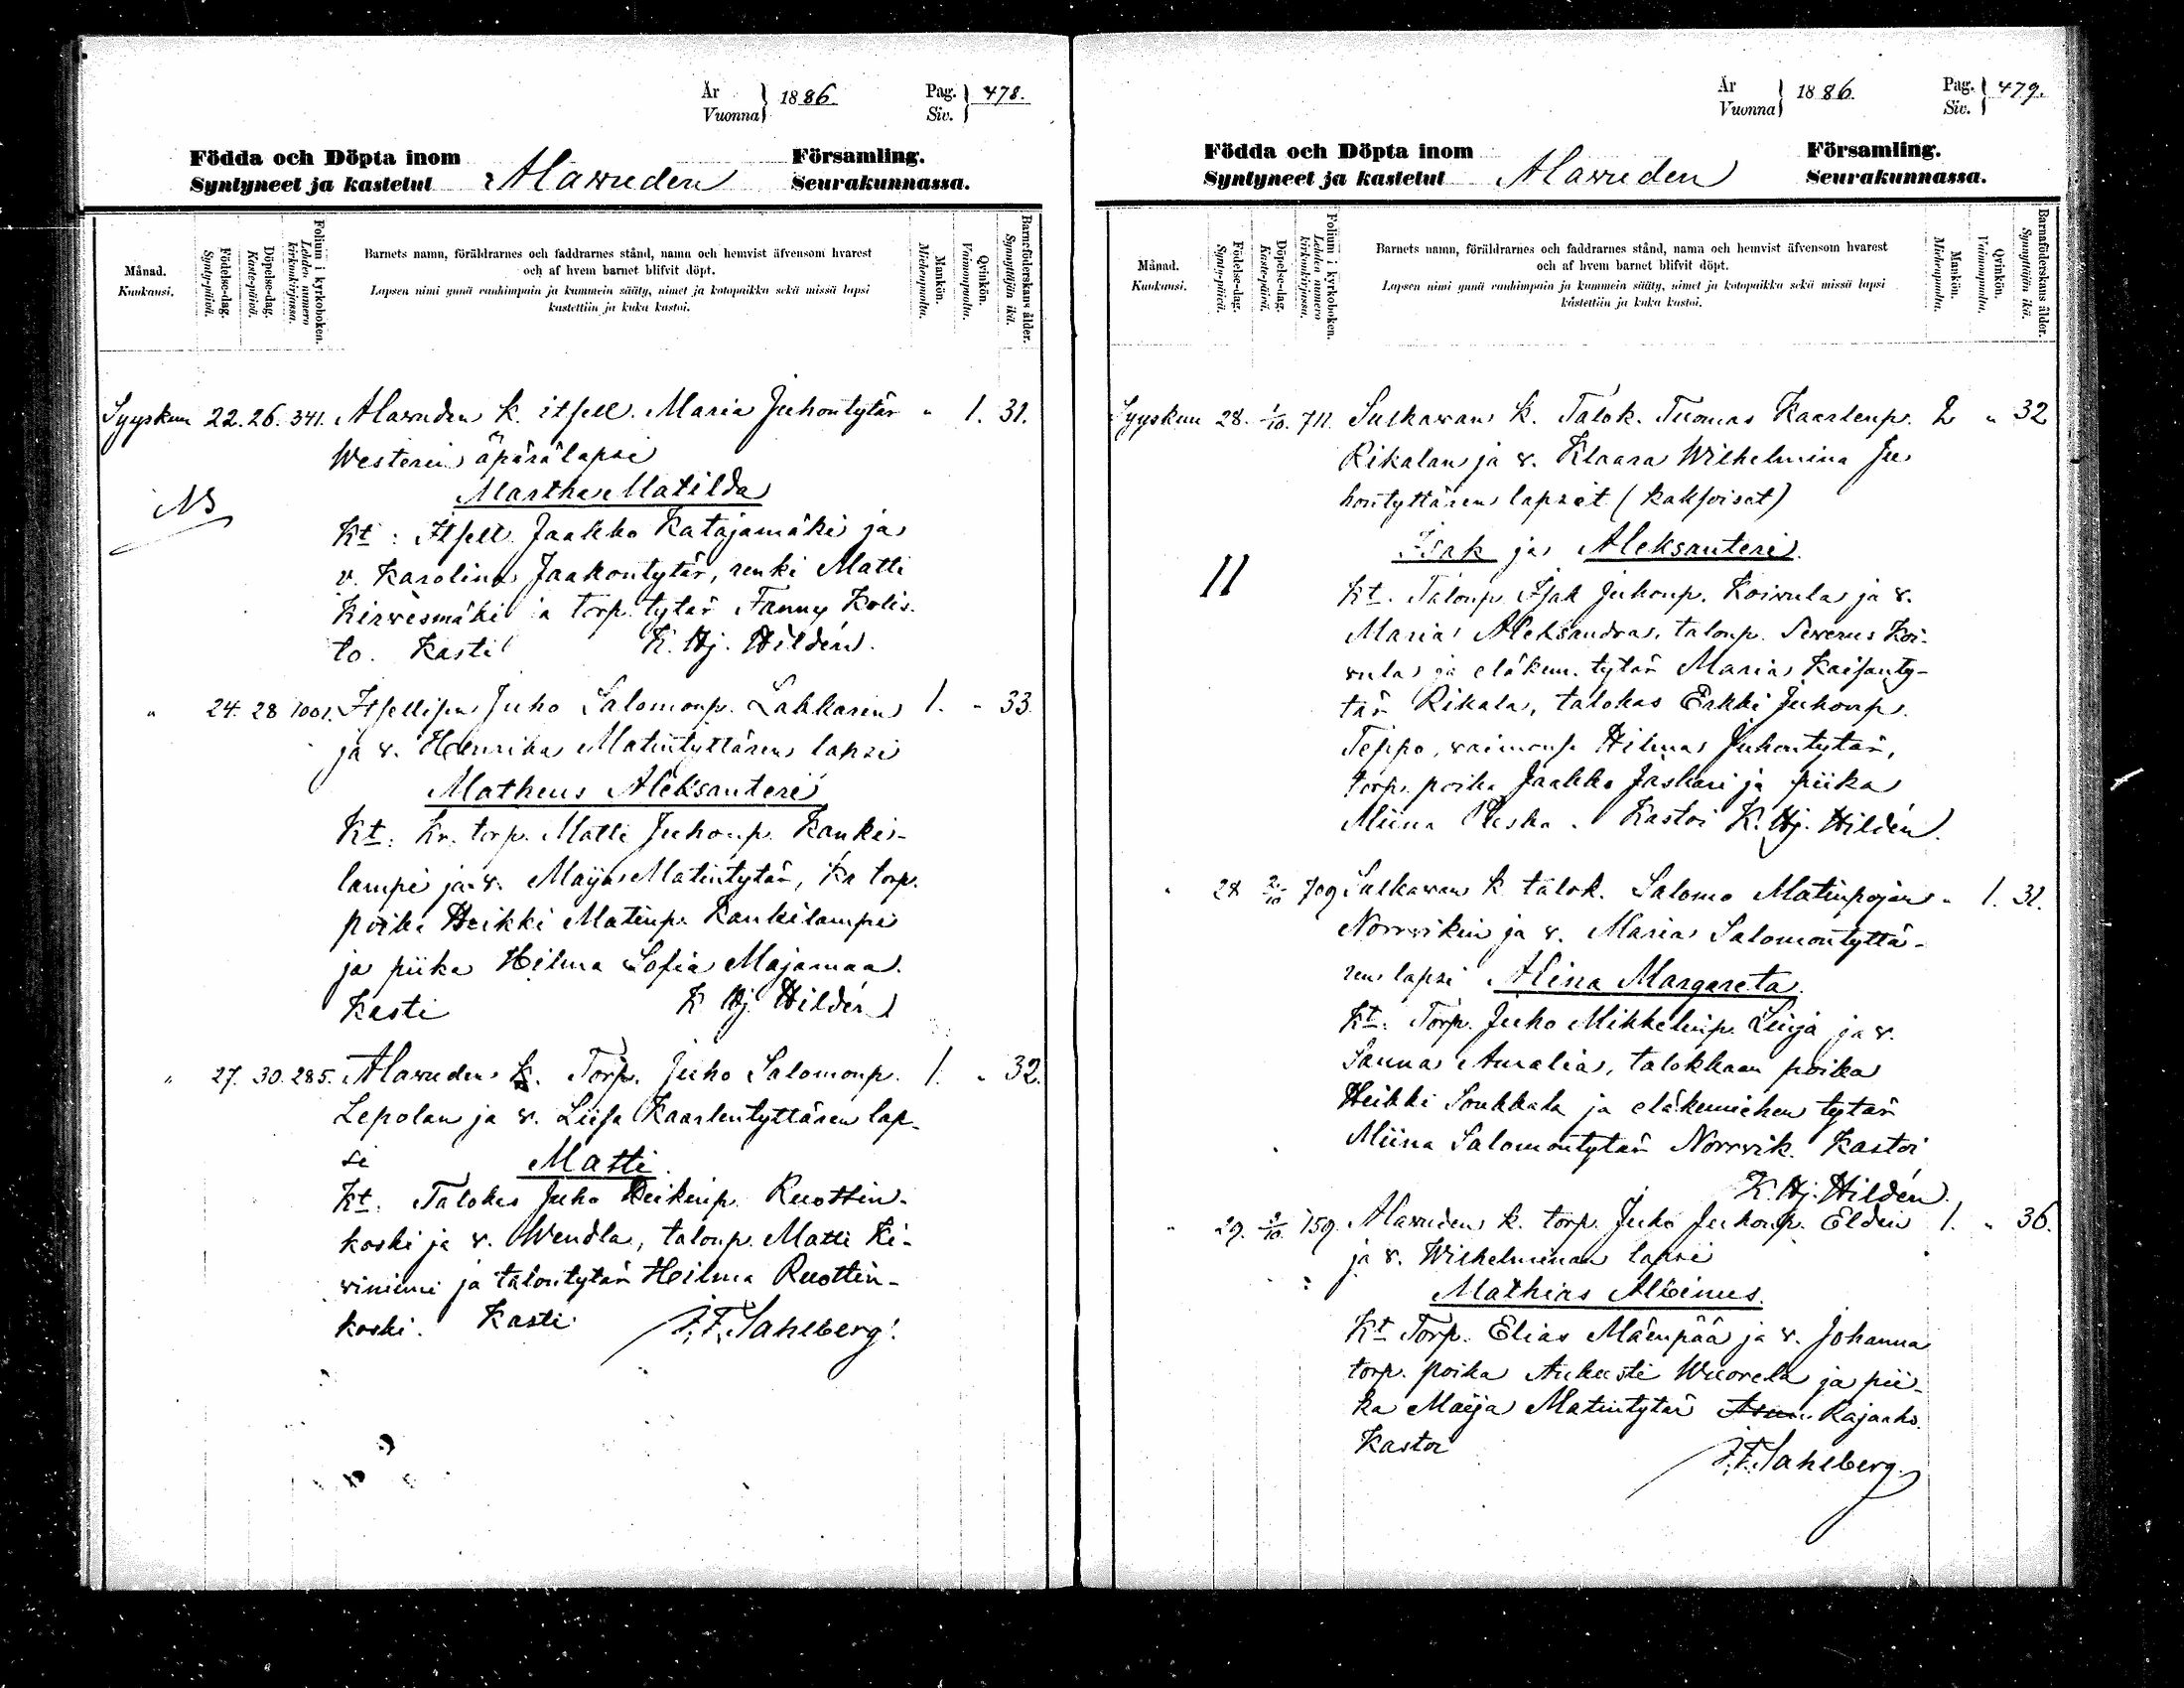 År
Vuonna } 1886.
Pag.
Siv. } 478.
Födda och Döpta inom Församling.
Syntyneet ja kastetut Alavuden Seurakunnassa.
Månad.
Kuukausi.
Födelse-dag.
Synty-päivä.
Döpelse-dag.
Kaste-päivä.
Folium i kyrkoboken.
Lehden numero
kirkonkirjassa.
Barnets namn, föräldrarnes och faddrarnes stånd, namn och hemvist äfvensom hvarest
och af hvem barnet blifvit döpt.
Lapsen nimi ynnä vanhimpain ja kummein sääty, nimet ja kotopaikka sekä missä lapsi
kastettiin ja kuka kastoi.
Mankön.
Miehenpuolta.
Qvinkön.
Vaimonpuolta.
Barnaföderskans ålder.
Synnyttäjän ikä.
Syyskuu 22. 26. 341. Alavuden k. itsell. Maria Juhontytär " 1. 31.
Westerin äpärälapsi
Martha Matilda
NB
Kt: Itsell. Jaakko Katajamäki ja
v. Karolina Jaakontytär, renki Matti
Kirvesmäki ja torp. tytär Fanny Kolis-
to. Kasti K. Hj. Hildén.
" 24. 28 1001. Itsellisen Juho Salomonp. Lakkarin 1. " 33.
ja v. Henrika Matintyttären lapsi
Matheus Aleksanteri
Kt: Kr. torp. Matti Juhonp. Kanki-
lampi ja v. Maija Matintytär, Kr torp.
poika Heikki Matinp. Kankilampi
ja piika Hilma Sofia Majamaa.
Kasti K Hj Hildén
" 27. 30. 285. Alavuden k. Torp. Juho Salomonp. 1. " 32.
Lepolan ja v. Liisa Kaarlentyttären lap-
si Matti.
Kt. Talokas Juho Heikinp. Ruottin-
koski ja v. Wendla, talonp. Matti Ki-
viniemi ja talontytär Hilma Ruottin-
koski. Kasti J. F. Sahlberg.
År
Vuonna } 1886.
Pag.
Siv. } 479.
Födda och Döpta inom Församling.
Syntyneet ja kastetut Alavuden Seurakunnassa.
Månad.
Kuukausi.
Födelse-dag.
Synty-päivä.
Döpelse-dag.
Kaste-päivä.
Folium i kyrkoboken.
Lehden numero
kirkonkirjassa.
Barnets namn, föräldrarnes och faddrarnes stånd, namn och hemvist äfvensom hvarest
och af hvem barnet blifvit döpt.
Lapsen nimi ynnä vanhimpain ja kummein sääty, nimet ja kotopaikka sekä missä lapsi
kastettiin ja kuka kastoi.
Mankön.
Miehenpuolta.
Qvinkön.
Vaimonpuolta.
Barnaföderskans ålder.
Synnyttäjän ikä.
Syyskuu 28. 1/10. 711. Sulkavan k. Talok. Tuomas Kaarlenp. 2 " 32
Rikalan ja v. Klaara Wilhelmina Ju-
hontyttären lapset (kaksoiset)
Isak ja Aleksanteri.
II
Kt. Talonp. Isak Juhonp. Koivula ja v.
Maria Aleksandra, talonp. Severus Koi-
vula ja eläkem. tytär Maria Kaisanty-
tär Rikala, talokas Erkki Juhonp.
Teppo, vaimons. Hilma Juhontytär,
torp. poika Jaakko Jaskari ja piika
Miina . Kastoi K. Hj. Hildén.
" 28 2/10 709 Sulkavan k talok. Salomo Matinpojan " 1. 31.
Norrvikin ja v. Maria Salomontyttä-
ren lapsi Alina Margareta.
Kt. Torp. Juho Mikkelinp. Linja ja v.
Sanna Amalia, talokkaan poika
Heikki Soukkala ja eläkemiehen tytär
Miina Salomontytär Norrvik. Kastoi
K. Hj. Hildén.
" 29. 2/10. 159. Alavuden k. torp. Juho Juhonp. Eldin 1. " 36.
ja v. Wilhelminan lapsi
Mathias Albinus.
Kt Torp. Elias Mäenpää ja v. Johanna
torp. poika Aukusti Wuorela ja pii-
ka Maija Matintytär Rajaaho.
Kastoi J. F. Sahlberg.